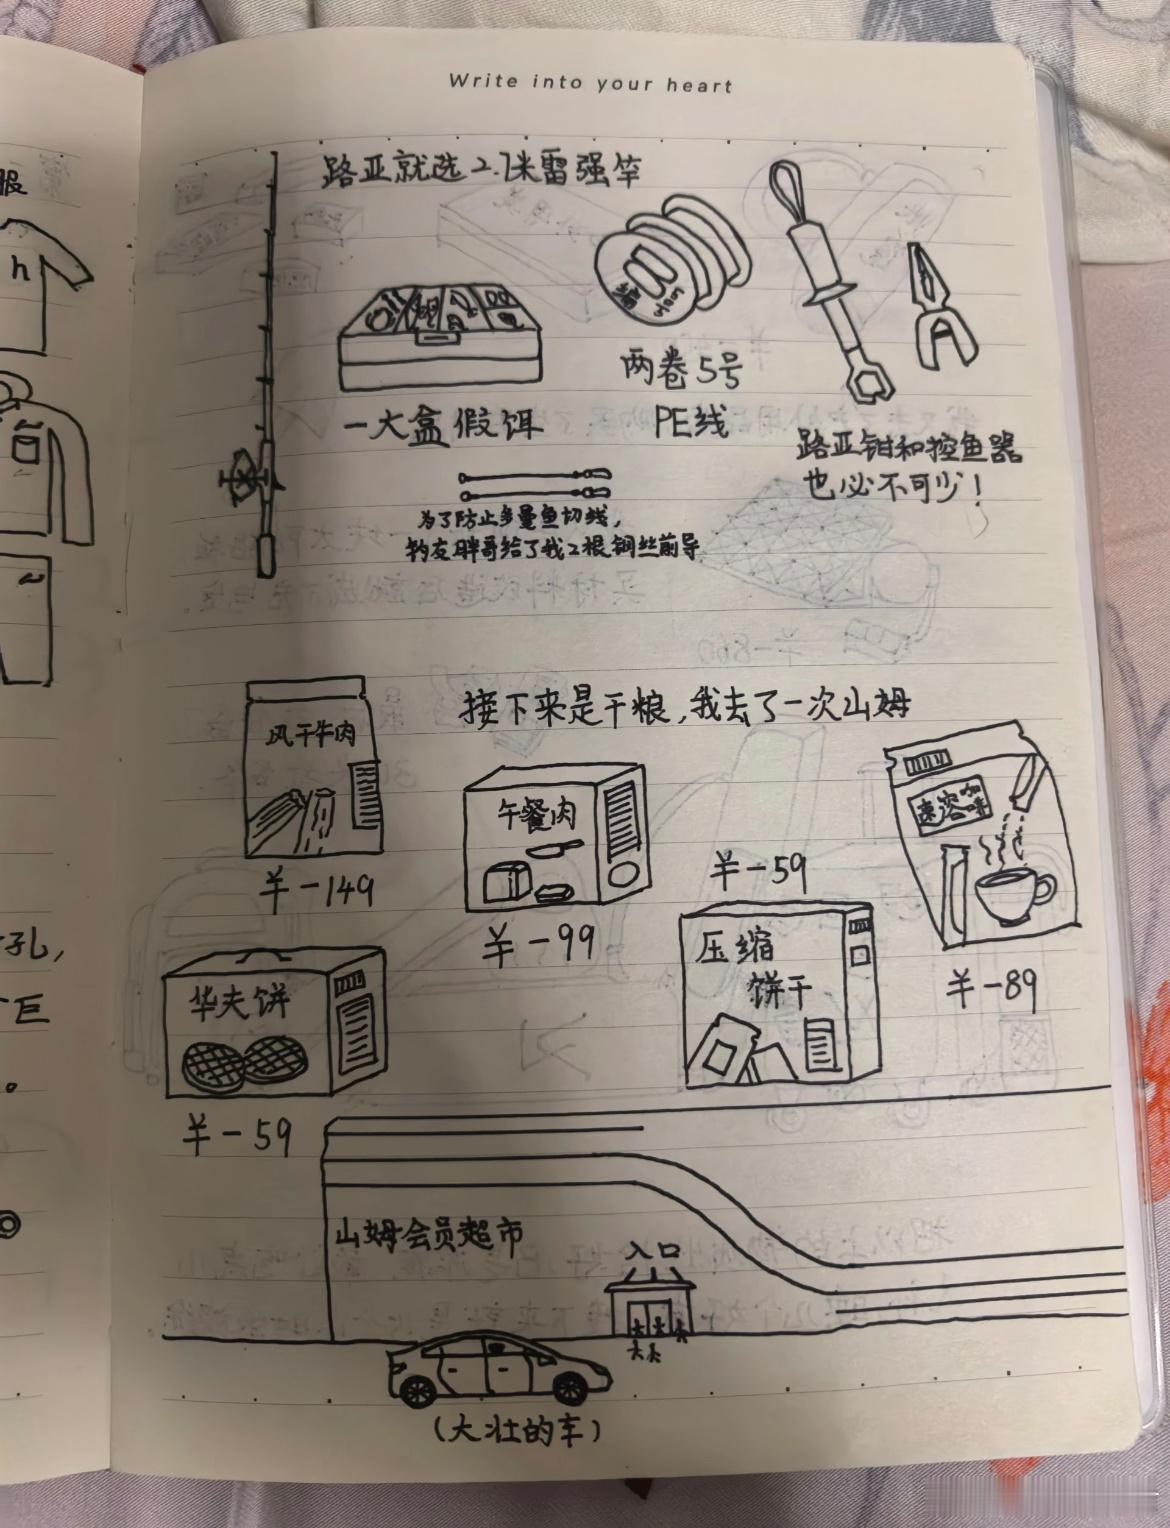 Write into your heart
服
h
路亚就选2.1米雷强竿
两卷5号
PE线
一大盒假饵
路亚钳和控鱼器
也必不可少!
为了防止多曼鱼切线,
钓友胖哥给了我2根钢丝前导
接下来是干粮,我去了一次山姆
风干牛肉
¥-149
午餐肉
¥-99
速溶咖啡
¥-89
¥-59
压缩
饼干
华夫饼
¥-59
孔,
巨
。
山姆会员超市
入口
(大壮的车)